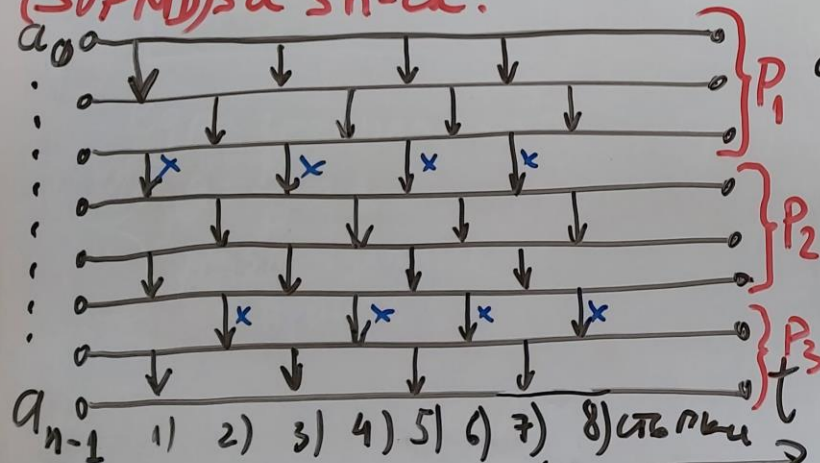 a₀
P₁
x x x x
P₂
x x x x
P₃
t
aₙ₋₁ 1) 2) 3) 4) 5) 6) 7) 8) стъпки